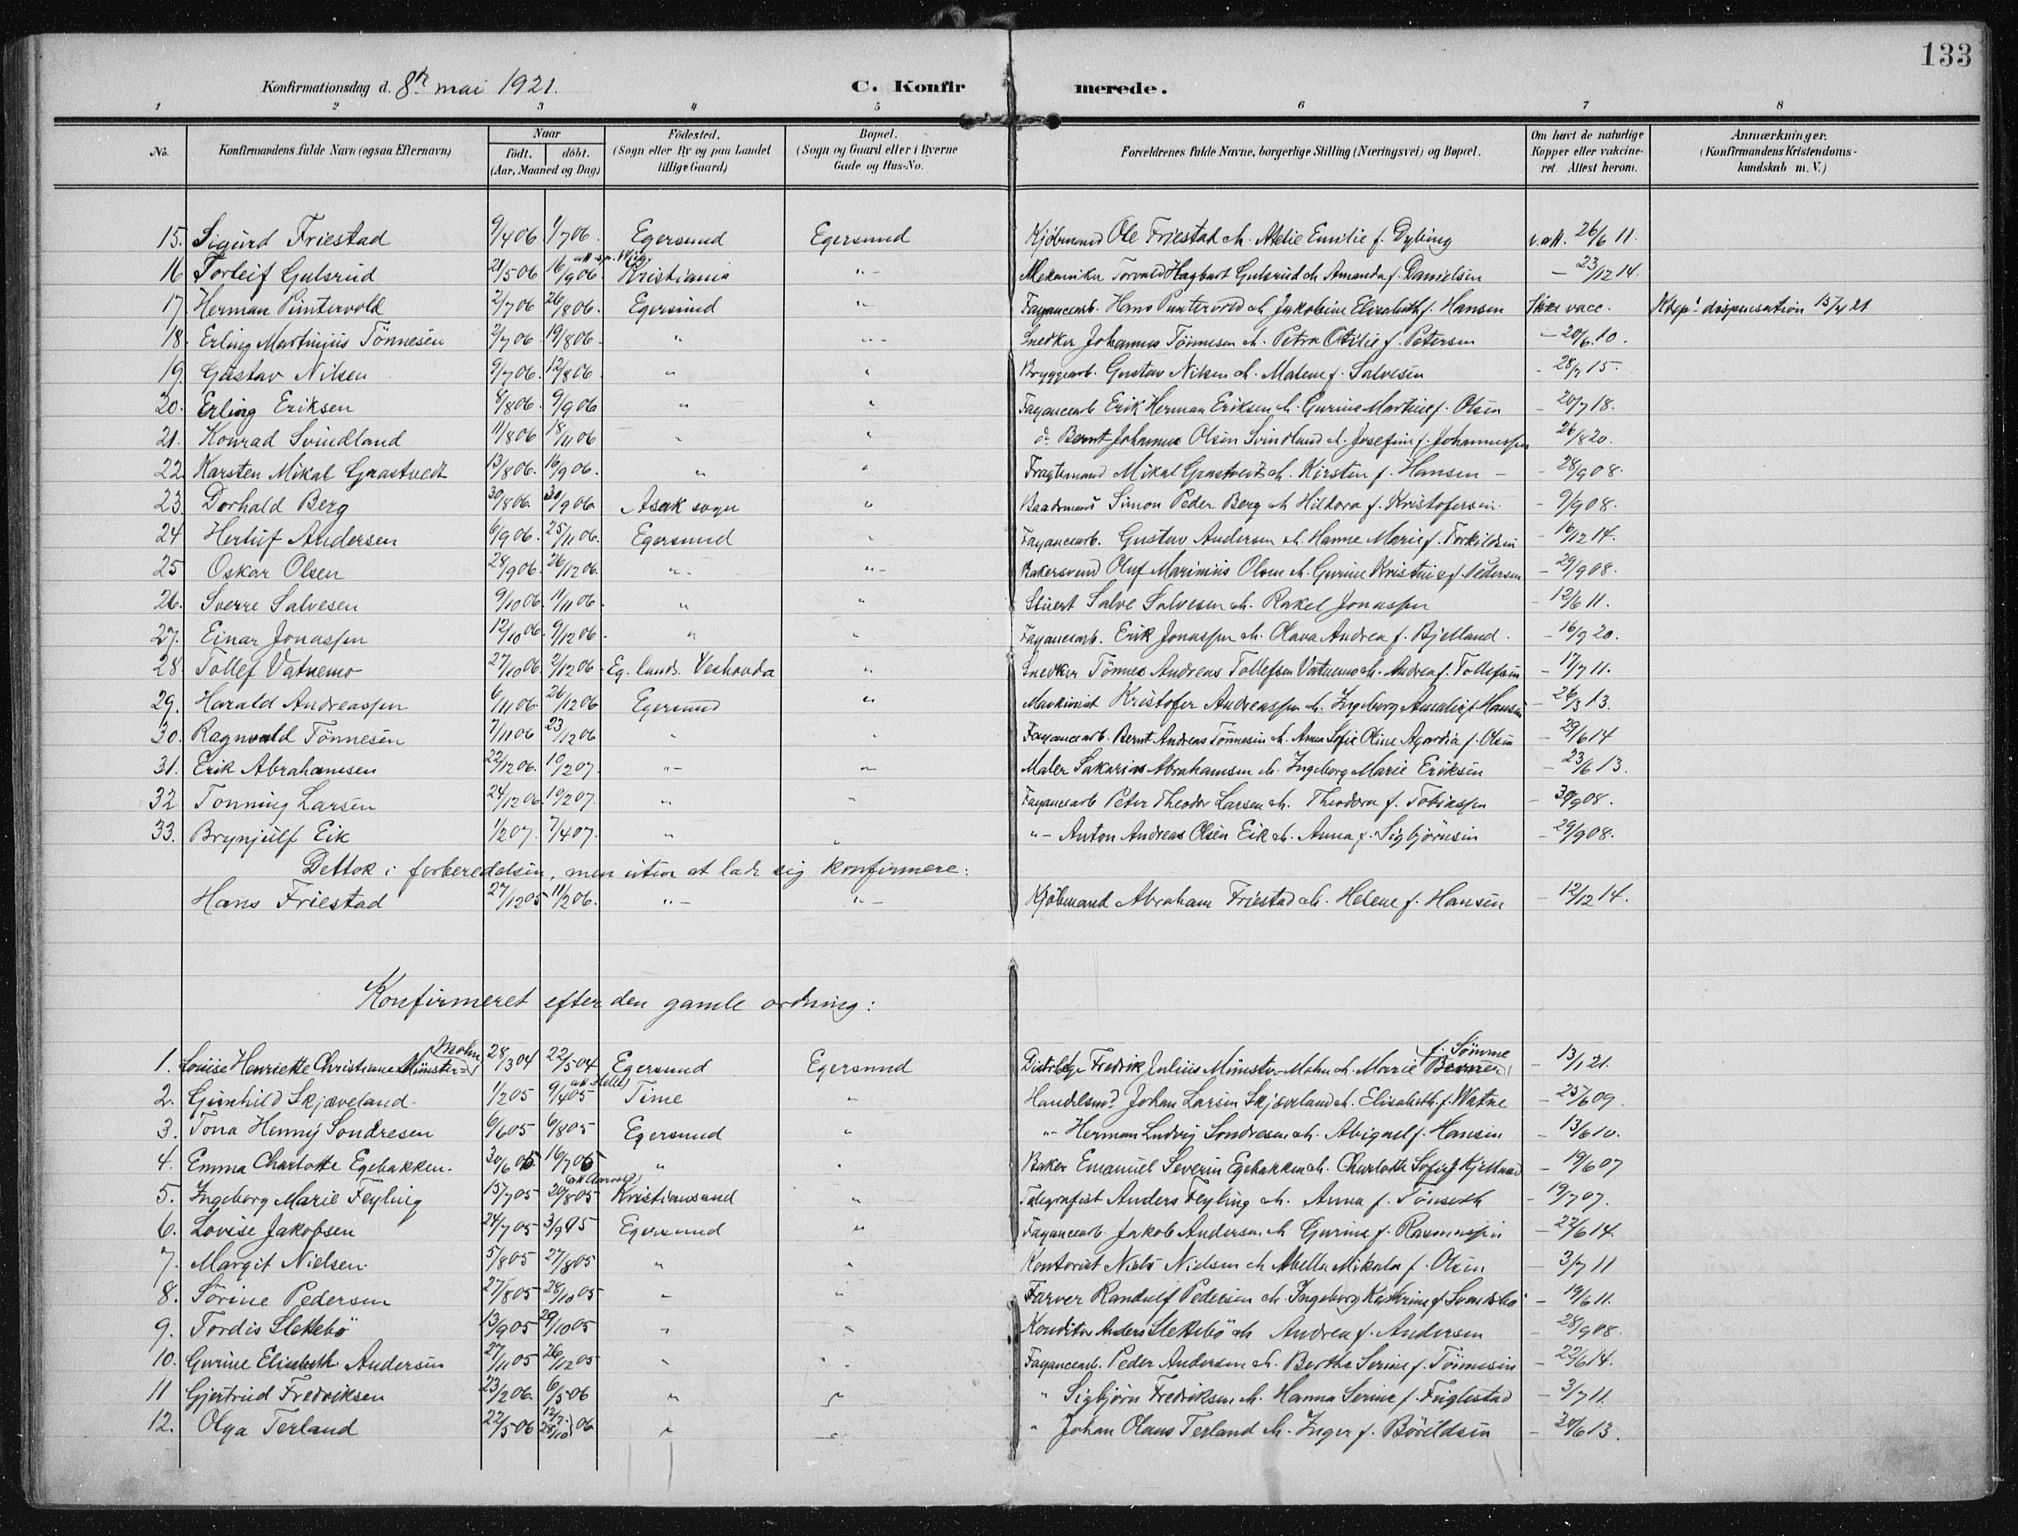 133
Konfirmationsdag d. 8de mai 1921. C. Konfirmerede.
1 2 3 4 5 6 7 8
No. Konfirmandens fulde Navn (ogsaa Efternavn) Naar födt. döbt. (Aar, Maaned og Dag) Födested. (Sogn eller By og paa Landet tillige Gaard) Bopæl. (Sogn og Gaard eller i Byerne Gade og Hus-No. Forældrenes fulde Navne, borgerlige Stilling (Næringsvei) og Bopæl. Om havt de naturlige Kopper eller vakcineret. Attest herom. Anmærkninger. (Konfirmandens Kristendomskundskab m. V.)
15. Sigurd Friestad 9/4 06. 1/7 06. Egersund Egersund Kjøbmand Ole Friestad o.h. Emilie f. Dybing v.att. 26/6 11.
16 Torleif Gulsrud 21/5 06 16/9 06. Kristiania "- Mekaniker Torvald Hagbart Gulsrud o.h. Amanda f. Danielsen - 23/12 14.
17. Herman Puntervold 2/7 06 26/8 06. Egersund Fayancearb. Hans Puntervold o.h. Jakobine Elisabeth f. Hansen Ikke vacc. dispensation 15/4 21
18. Erling Martinius Tönnesen 2/7 06. 19/8 06. " "- Snedker Johannes Tönnesen o.h. Petra Otilie f. Petersen - 20/6 10.
19. Gustav Nilsen 9/7 06. 12/8 06. " " Bryggearb. Gustav Nilsen o.h. Malene f. Salvesen - 28/7 15.
20. Erling Eriksen 8/8 06. 9/9 06 " " Fayancearb Erik Herman Eriksen o.h. Gurine Martine f. Olsen - 20/7 18.
21. Konrad Svindland 11/8 06 18/11 06 " " d. Bernt Johannes Olsen Svindland o.h. Josefine f. Johannessen 26/8 20.
22 Karsten Mikal Grastvedt 13/8 06. 16/9 06. " " Fragtemand Mikal Grastveit o.h. Kirsten f. Hansen - - 28/9 08.
23. Dorhald Berg 30/8 06. 30/9 06 Asak sogn " Baadsmand Simon Peder Berg o.h. Hildora f. Kristofersen. - 9/9 08.
24 Herluf Andersen 6/9 06. 25/11 06. Egersund " Fayancearb. Gustav Andersen o.h. Hanne Marie f. Torkildsen - 16/12 14.
25 Oskar Olsen 28/9 06. 26/12 06. "- "- Bakersvend Oluf Marinius Olsen o.h. Gurine Kristine f. Pedersen - 29/9 08.
26. Sverre Salvesen 9/10 06 11/11 06 " " Stuert Salve Salvesen o.h. Rakel Jonassen - 12/6 11.
27. Einar Jonassen 12/10 06. 9/12 06. " " Fayancearb. Erik Jonassen o.h. Olava Andrea f. Bjelland. - 16/9 20.
28. Tollef Vatnemo 27/10 06. 2/12 06. Eg. lands. " Snedker Tönnes Andreas Tollefsen Vatnemo o.h. Andrea f. Tollefsen - 17/7 11.
29. Harald Andreassen 6/11 06. 26/12 06 Egersund " Maskinist Kristofer Andreassen o.h. Ingeborg Amalie f. Hansen - 26/3 13.
30. Ragnvald Tönnesen 7/11 06 23/12 06 " " Fayancearb. Bernt Andreas Tönnesen o.h. Anna Sofie Oline Agardia f. Olsen - 29/6 14
31. Erik Abrahamsen 22/12 06. 10/2 07. "- "- Maler Sakarias Abrahamsen o.h. Ingeborg Marie Eriksen - 23/6 13.
32 Tonning Larsen 24/12 06. 10/2 07. " " Fayancearb Peter Theodor Larsen o.h. Theodora f. Tobiassen - 30/9 08.
33. Brynjulf Eik 1/2 07. 7/4 07. " " "- Anton Andreas Olsen Eik o.h. Anna f. Sigbjörnsen - 29/9 08.
Deltok i forberedelsen, men uten at lade sig konfirmere:
Hans Friestad 27/12 05 11/2 06. "- "- Kjöbmand Abraham Friestad o.h. Helene f. Hansen - 12/12 14.
Konfirmeret efter den gamle ordning:
1. Louise Henriette Christiane Münster-Mohn 28/3 04 22/5 04 Egersund Egersund Fredrik Julius Münster-Mohn o.h. Marie f. Sømme - 13/1 21.
2. Gunhild Skjæveland. 1/2 05 9/4 05 Time " Handelsmd. Johan Larsen Skjæveland o.h. Elisabeth f. Watne - 25/6 09.
3. Tona Henny Sondresen 6/6 05 6/8 05 Egersund " "- Herman Ludvig Sondresen o.h. Abigael f. Hansen - 13/6 10.
4. Emma Charlotte Egebakken. 30/6 05. 16/7 05 " " Baker Emanuel Severin Egebakken o.h. Charlotte Sofie f. Kjelland - 19/6 07
5. Ingeborg Marie Feyling 15/7 05 20/8 05 Kristiansand " Telegrafist Anders Feyling o.h. Anna f. Tönseth - 19/7 07.
6. Lovise Jakobsen 24/7 05 3/9 05 Egersund " Fayancearb. Jakob Andersen o.h. Gurine f. Rasmussen - 22/6 14.
7. Margit Nielsen. 5/8 05 27/8 05. " " Kontorist Niels Nielsen o.h. Abella Mikala f. Olsen - 3/7 11
8. Sörine Pedersen 27/8 05 28/10 05 " " Farver Randulf Pedersen o.h. Ingeborg Kathrine f. Svandsbø - 19/6 11.
9. Tordis Slettebö 13/9 05 29/10 05 " " Konditor Anders Slettebö o.h. Andrea f. Andersen - 28/9 08.
10. Gurine Elisabeth Andersen 27/11 05 26/12 05 " " Fayancearb. Peder Andersen o.h. Berthe Serine f. Tönnesen - 22/6 14.
11 Gjertrud Fredriksen 23/2 06. 6/5 06 " " " Sigbjörn Fredriksen o.h. Hanna Serine f. Fuglestad - 3/7 11.
12. Olga Terland 22/5 06 12/7. 28/10 06 " " " Johan Olaus Terland o.h. Inger f. Bövildsen - 20/6 13.